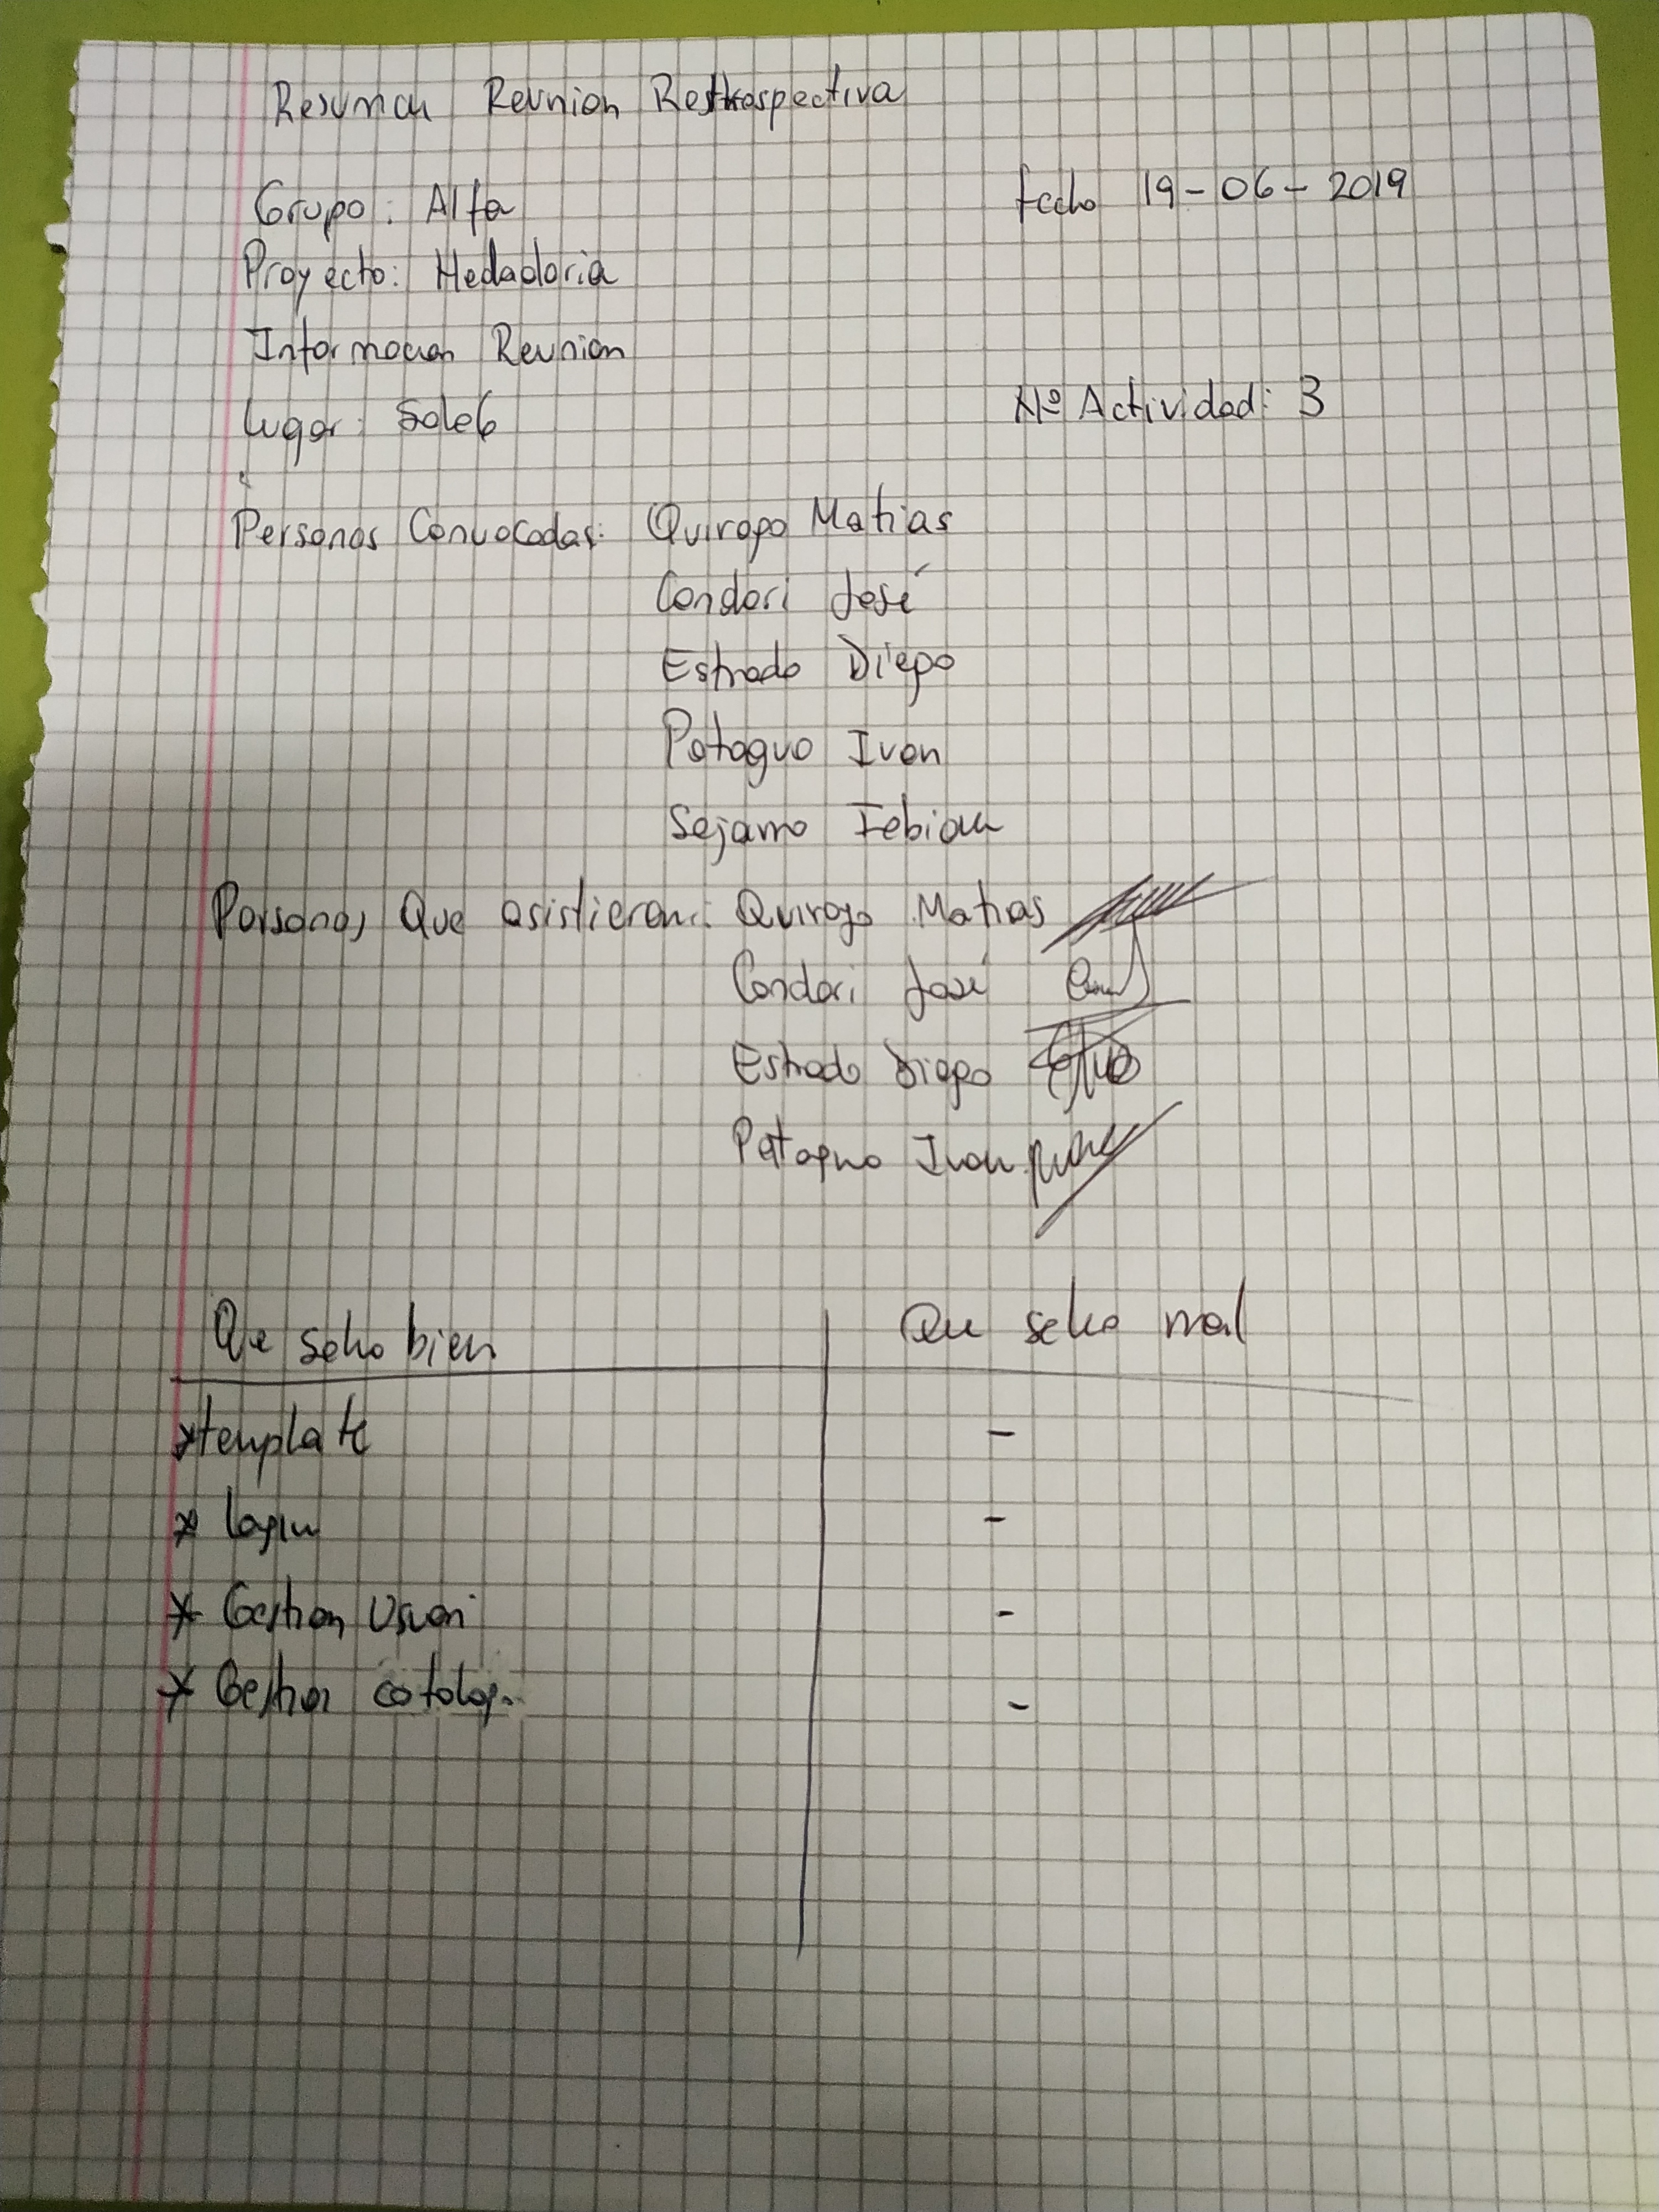 Resumen Reunion Restrospectiva
Grupo: Alfa fecha 19-06-2019
Proyecto: Heladoria
Informacion Reunion
Lugar: Sala 6 Nº Actividad: 3
Personas Convocadas: Quiroga Matias
Condori José
Estrada Diego
Patagua Ivan
Sejamo Fabian
Personas Que asistieron: Quiroga Matias
Condori José
Estrada Diego
Patagua Ivan
Que seho bien Que seho mal
*template -
* login -
* Gestion Usuari -
* Gestion catalog. -